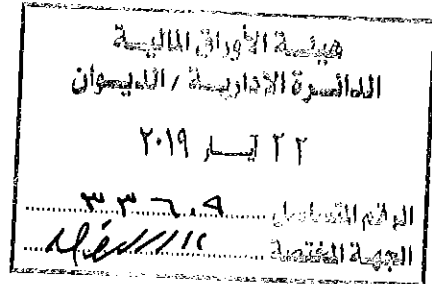 هيئة الأوراق المالية
الدائرة الإدارية / الديوان
٢٢ أيار ٢٠١٩
الرقم المتسلسل
الجهة المختصة